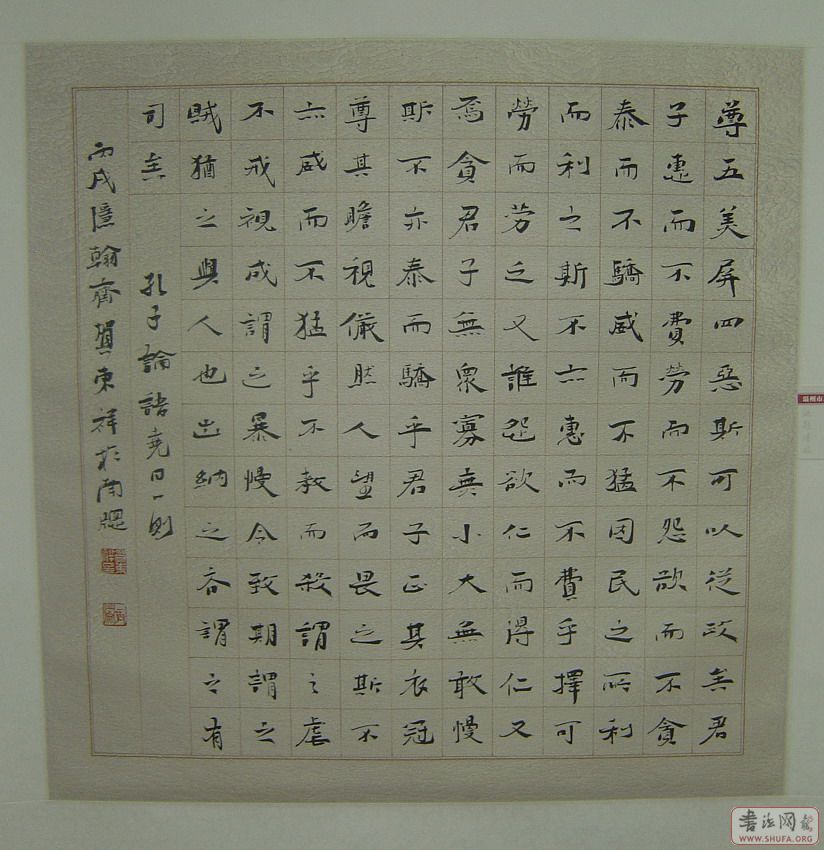 尊五美屏四惡斯可以從政矣君
子惠而不費勞而不怨欲而不貪
泰而不驕威而不猛因民之所利
而利之斯不亦惠而不費乎擇可
勞而勞之又誰怨欲仁而得仁又
焉貪君子無衆寡無小大無敢慢
斯不亦泰而驕乎君子正其衣冠
尊其瞻視儼然人望而畏之斯不
亦威而不猛乎不教而殺謂之虐
不戒視成謂之暴慢令致期謂之
賊猶之與人也出納之吝謂之有
司矣
孔子論語堯曰一則
丙戌 翰齊賀東祥於南
書法网
WWW.SHUFA.ORG